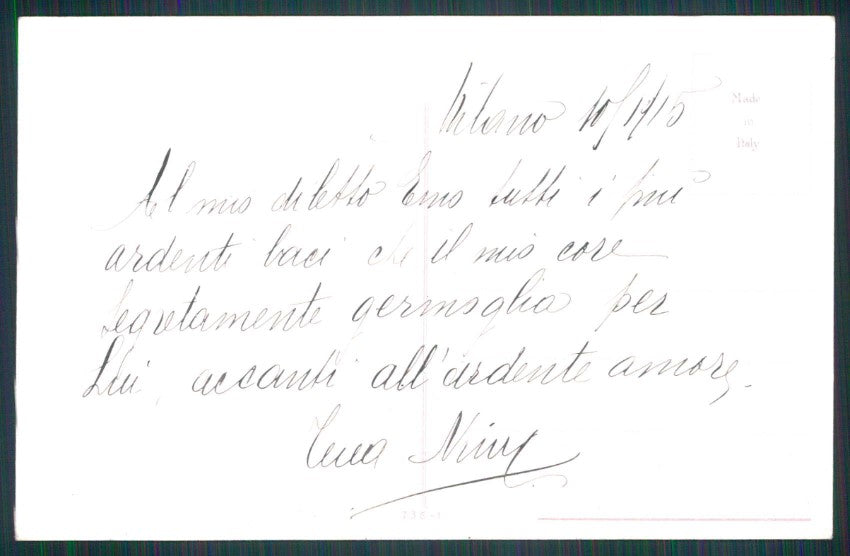 Milano 10/1915
Made
in
Italy
Al mio diletto Emo tutti i più
ardenti baci che il mio core
segretamente germoglia per
Lui, accanti all'ardente amore,
Tuua Niny
736-1